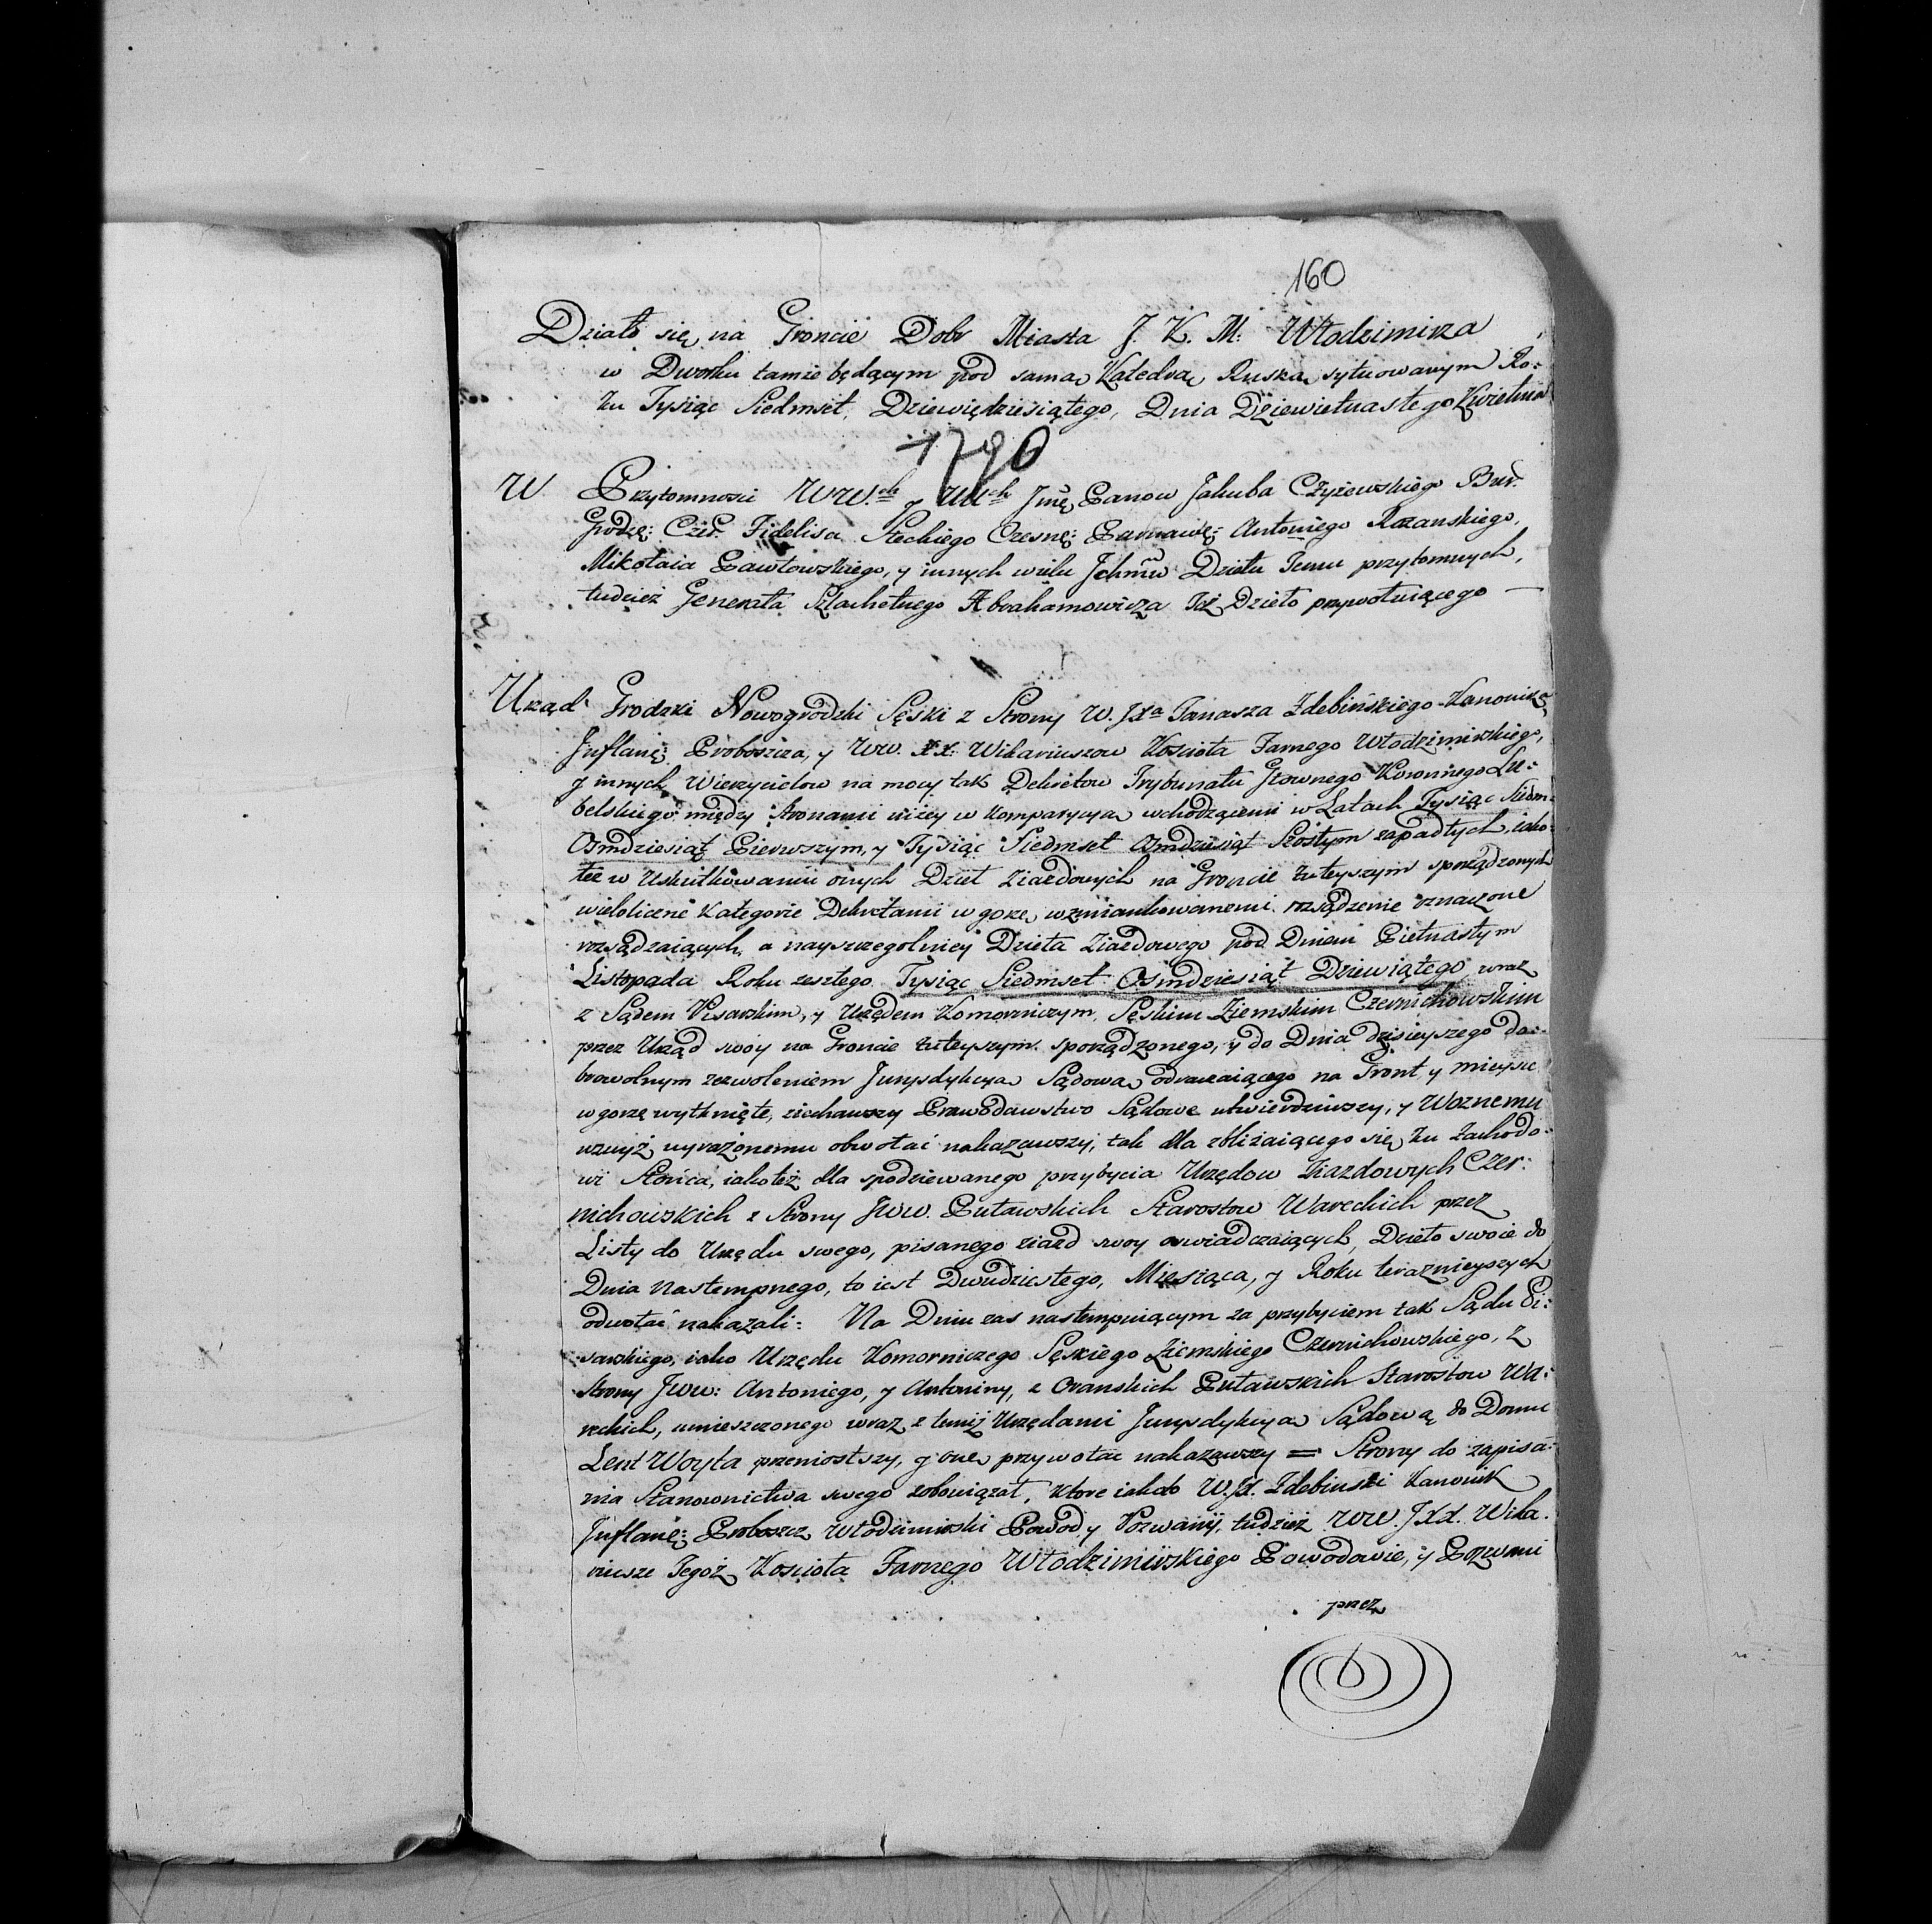 160
Działo się na Gróncie Dobr Miasta J. K. M: Włodzimirza
w Dworku tamże będącym pod samą Katedrą Ruską sytuowanym Ro:
ku Tysiąc Siedmset, Dziewiędziesiątego, Dnia Dziewietnastego Kwietnia
1790
W Przytomnosci WW.ch y Uch Jmę Panow Jakuba Czyżewskiego Bur.
Grodzę: Czer. Fidelisa Steckiego Czesnę: Parnawę: Antoniego Rozanskiego,
Mikołaia Pawłowskiego, y innych wielu Jchmw Dziełu Temu przytomnych,
tudzież Generała Szlachetnego Abrahamowicza Toż Dzieło przywołuiącego —
Urząd Grodzki Nowogrodzki Sęski z Strony W. Jxa Tanasza Zdebińskiego Kanonika
Jnflanę: Proboszcza, y WW. XX: Wikariuszow Kościoła Farnego Włodzimirskiego,
y innych Wierzycielow na mocy tak Dekretow Trybunału Głownego Koronnego Lu:
belskiego między Stronami niżey w Komparycyą wchodzącemi w Latach Tysiąc Siedm:
Osmdziesiąt Pierwszym, y Tysiąc Siedmset Osmdziesiąt Szostym zapadłych, iako:
też w Uskutkowaniu onych Dzieł Ziazdowych na Gróncie tuteyszym sporządzonych
wieloliczne Kategorie Dekretami w gorze wzmiankowanemi rozsądzenie oznaczone
rozsądzaiących, a nayszczegolniey Dzieła Ziazdowego pod Dniem Pietnastym
Listopada Roku zeszłego Tysiąc Siedmset Osmdziesiąt Dziewiątego, wraz
z Sądem Pisarskim, y Urzędem Komorniczym, Sęskim Ziemskim Czernichowskim
przez Urząd swoy na Gróncie tuteyszym sporządzonego, y do Dnia dzisieyszego do:
browolnym zezwoleniem Jurysdykcyą Sądową odraczaiącego na Gront y mieysce
w gorze wytknięte, ziechawszy Prawodawstwo Sądowe utwierdziwszy, y Woznemu
wzwyż wyrażonemu obwołać nakazawszy, tak dla zbliżaiącego się ku Zachodo:
wi Słońca, iakoteż dla spodziewanego przybycia Urzędow Ziazdowych Czer:
nichowskich z Strony Jww. Puławskich Starostow Wareckich przez
Listy do Urzędu swego, pisanego ziazd swoy oswiadczaiących, Dzieło swoie do
Dnia Nastempnego, to iest Dwudziestego, Miesiąca, y Roku teraznieyszych
odwołać nakazali: Na Dniu zas nastempuiącym za przybyciem tak Sądu Pi:
sarskiego, iako Urzędu Komorniczego Sęskiego Ziemskiego Czernichowskiego, z
Strony Jww: Antoniego, y Antoniny, z Oranskich Puławskich Starostow Wa:
reckich, umieszczonego wraz z temiż Urzędami Jurysdykcyą Sądową do Domu
Lent Woyta przeniosłszy, y onę przywołac nakazawszy = Strony do zapisa:
nia Stanownictwa swego zobowiązał, Ktore iakoto W.Jx. Zdebinski Kanonik
Jnflanę: Proboszcz Włodzimirski Powod y Pozwany, tudzież WW. Jxx. Wika:
riusze Tegoż Kościoła Farnego Włodzimirskiego Powodowie, y Pozwani
przez